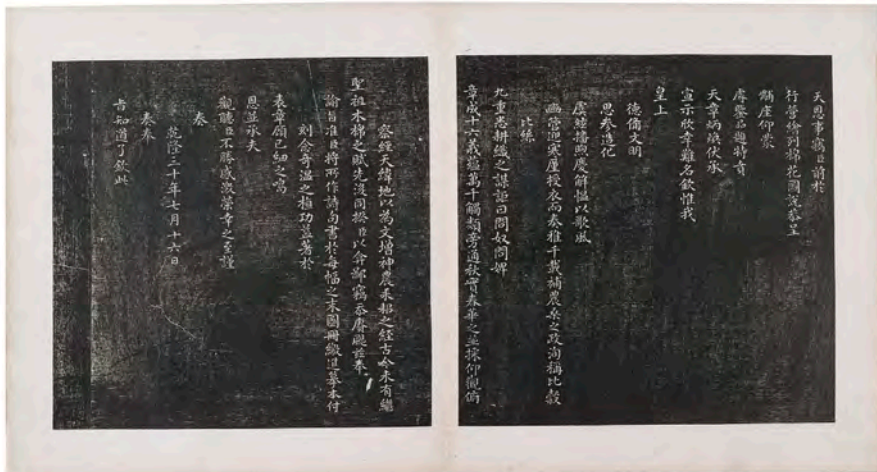 天恩事竊臣前於
行營繪列棉花圖說恭呈
黼扆仰蒙
睿鑒題特賁
天章炳煥伏承
宣示欣幸難名欽惟我
皇上
德備文明
思參造化
虞絃播曲慶解慍以歌風
豳管寒廑授衣而奏雅千載補農桑之政洵稱比穀
比絲
九重耕織之謀詎曰問奴問婢
章成十六義蘊萬千觸類旁通秋實春華之並採仰觀俯
察經天緯地以為文增神農耒耜之經古今未有繼
聖祖木棉之賦先後同揆臣以弇鄙竊忝賡颺茲奉
諭旨准臣將所作詩句書於每幅之末圖冊繳進摹本付
刻念溫之功益著於
表章願細之鳴
恩並承夫
觀聽臣不勝感激榮幸之至謹
奏
乾隆三十年七月十六日
奏奉
旨知道了欽此